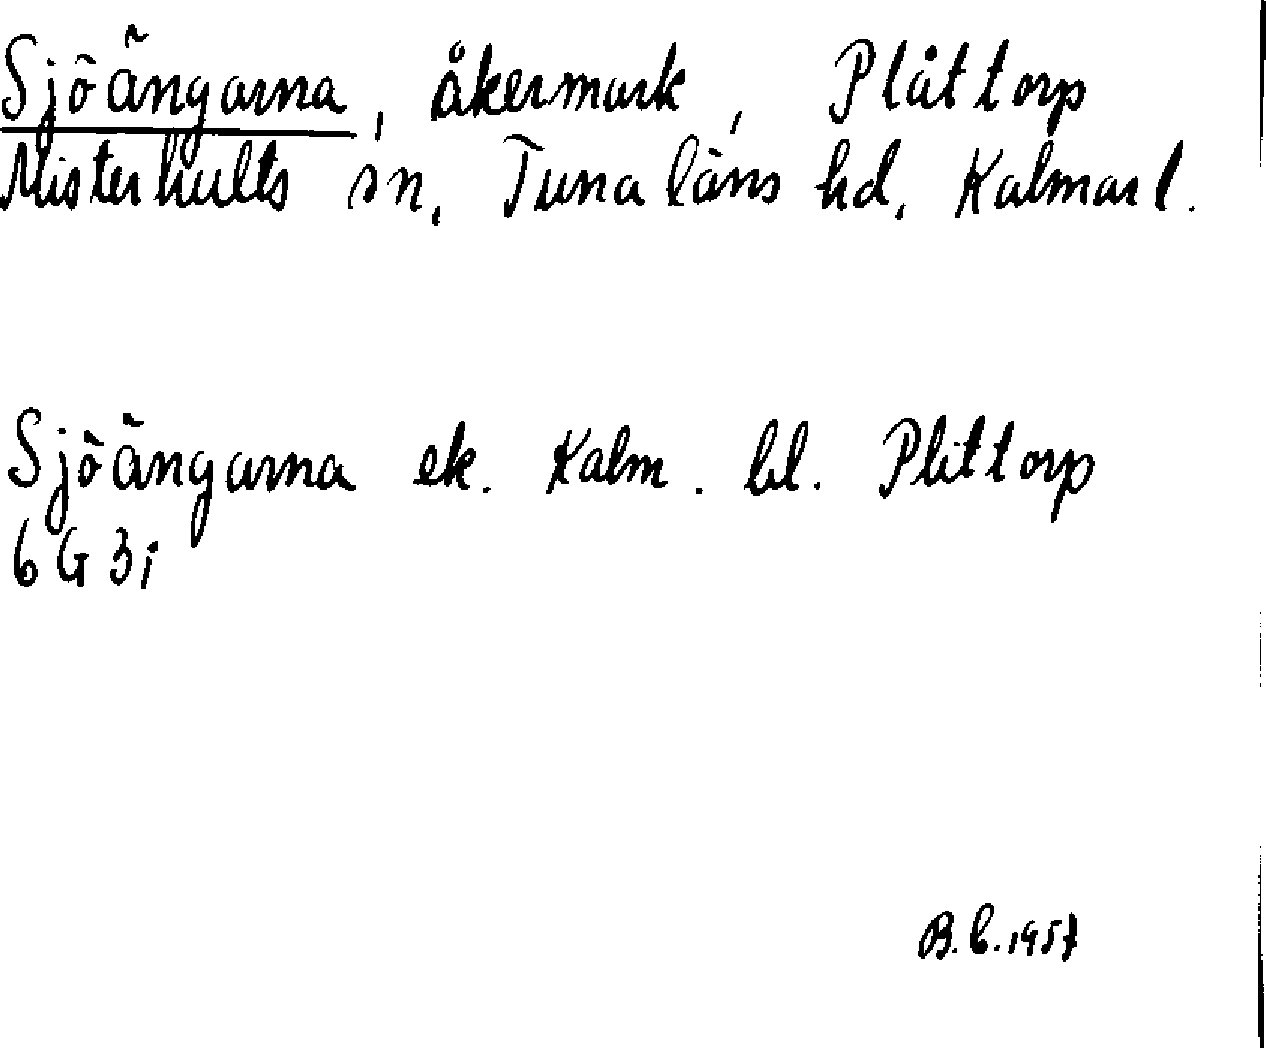 Sjöängarna, åkermark, Plåttorp
Misterhults sn, Tunaläns hd, Kalmar l.
Sjöängarna ek. Kalm. bl. Plittorp
6G 3i
B.C. 1957